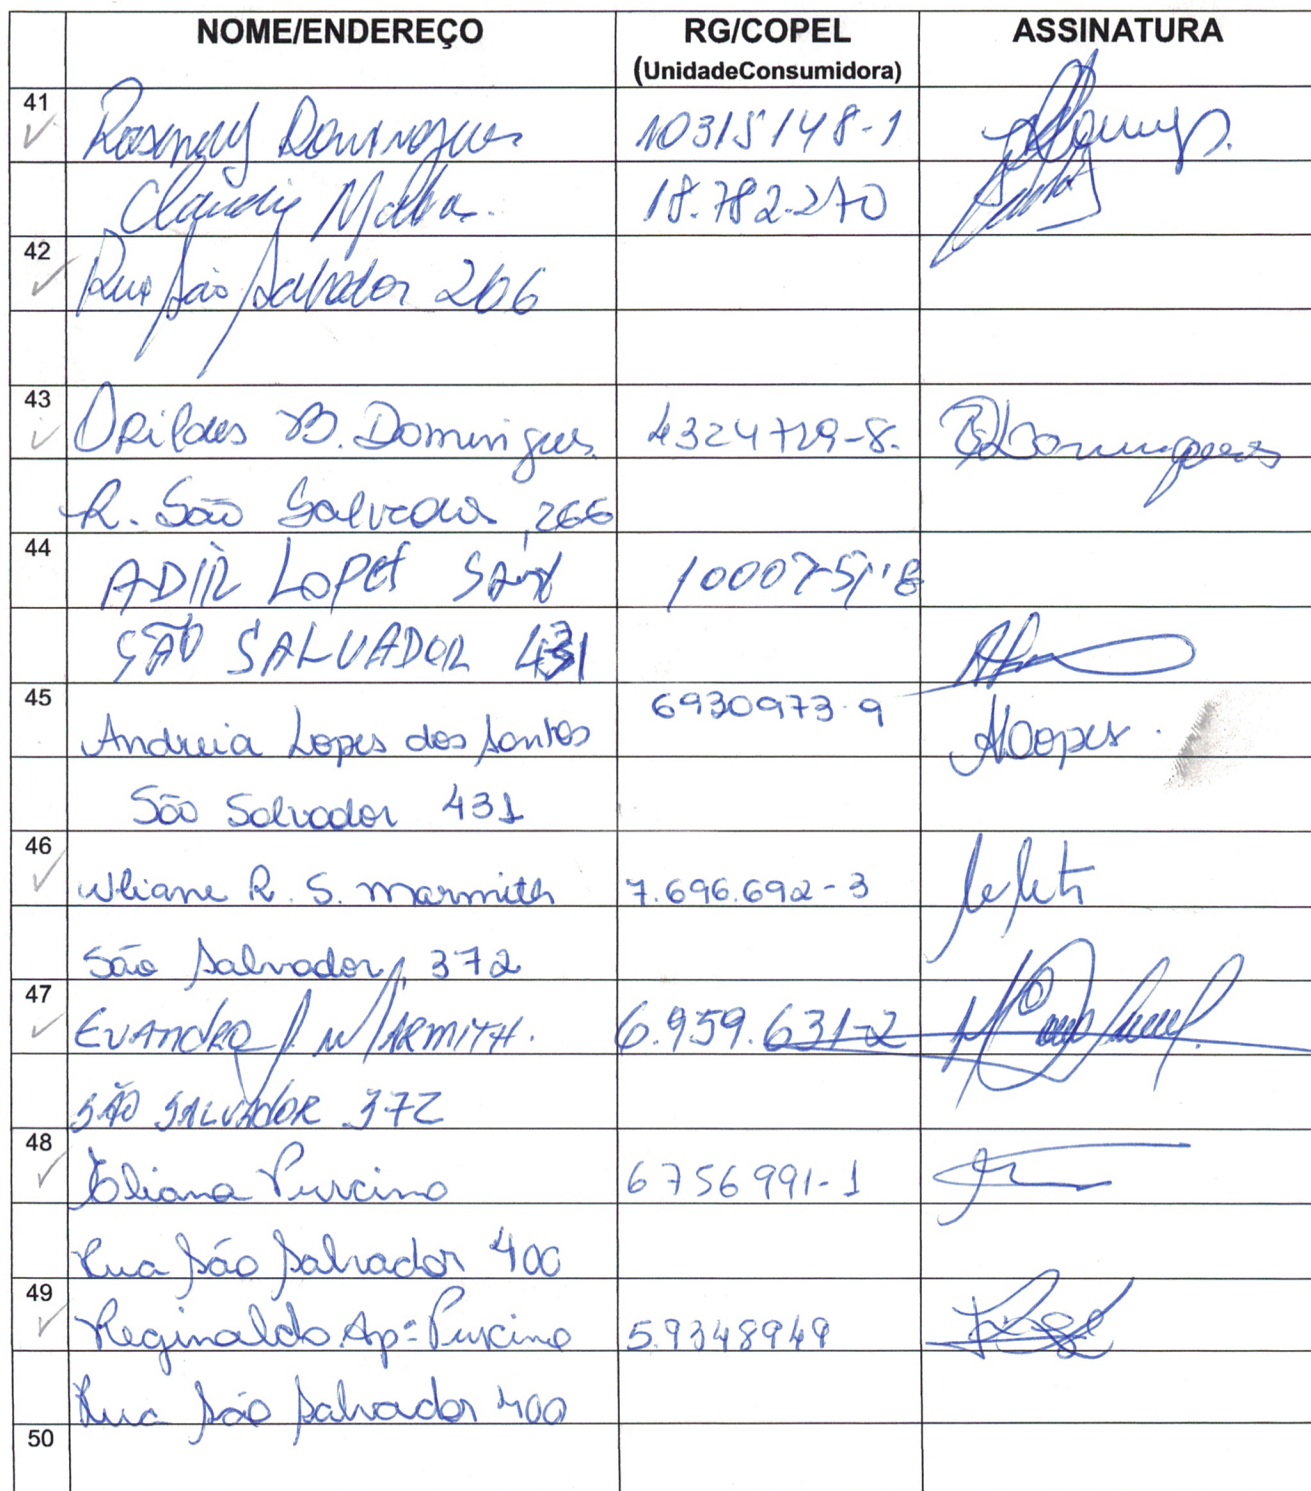 NOME/ENDEREÇO RG/COPEL ASSINATURA
(UnidadeConsumidora)
41 Rosendy Domingues 10315148-1
Claudio 18.782.270
42 Rua São Salvador 266
43 Orildes B. Domingues 4324729-8. BDomingues
R. São Salvador, 266
44 ADIR LOPES 
SÃO SALVADOR 431
45 Andreia Lopes dos Santos 6930973-9 ALopes
São Salvador 431
46 Uliane R. S. Marmith 7.696.692-3
São Salvador, 372
47 EVANDRO MARMITH. 6.959.631-2
SÃO SALVADOR 372
48 Eliana Purcino 6756991-1
Rua São Salvador 400
49 Reginaldo Apº Purcino 5.9348949
Rua São Salvador 400
50